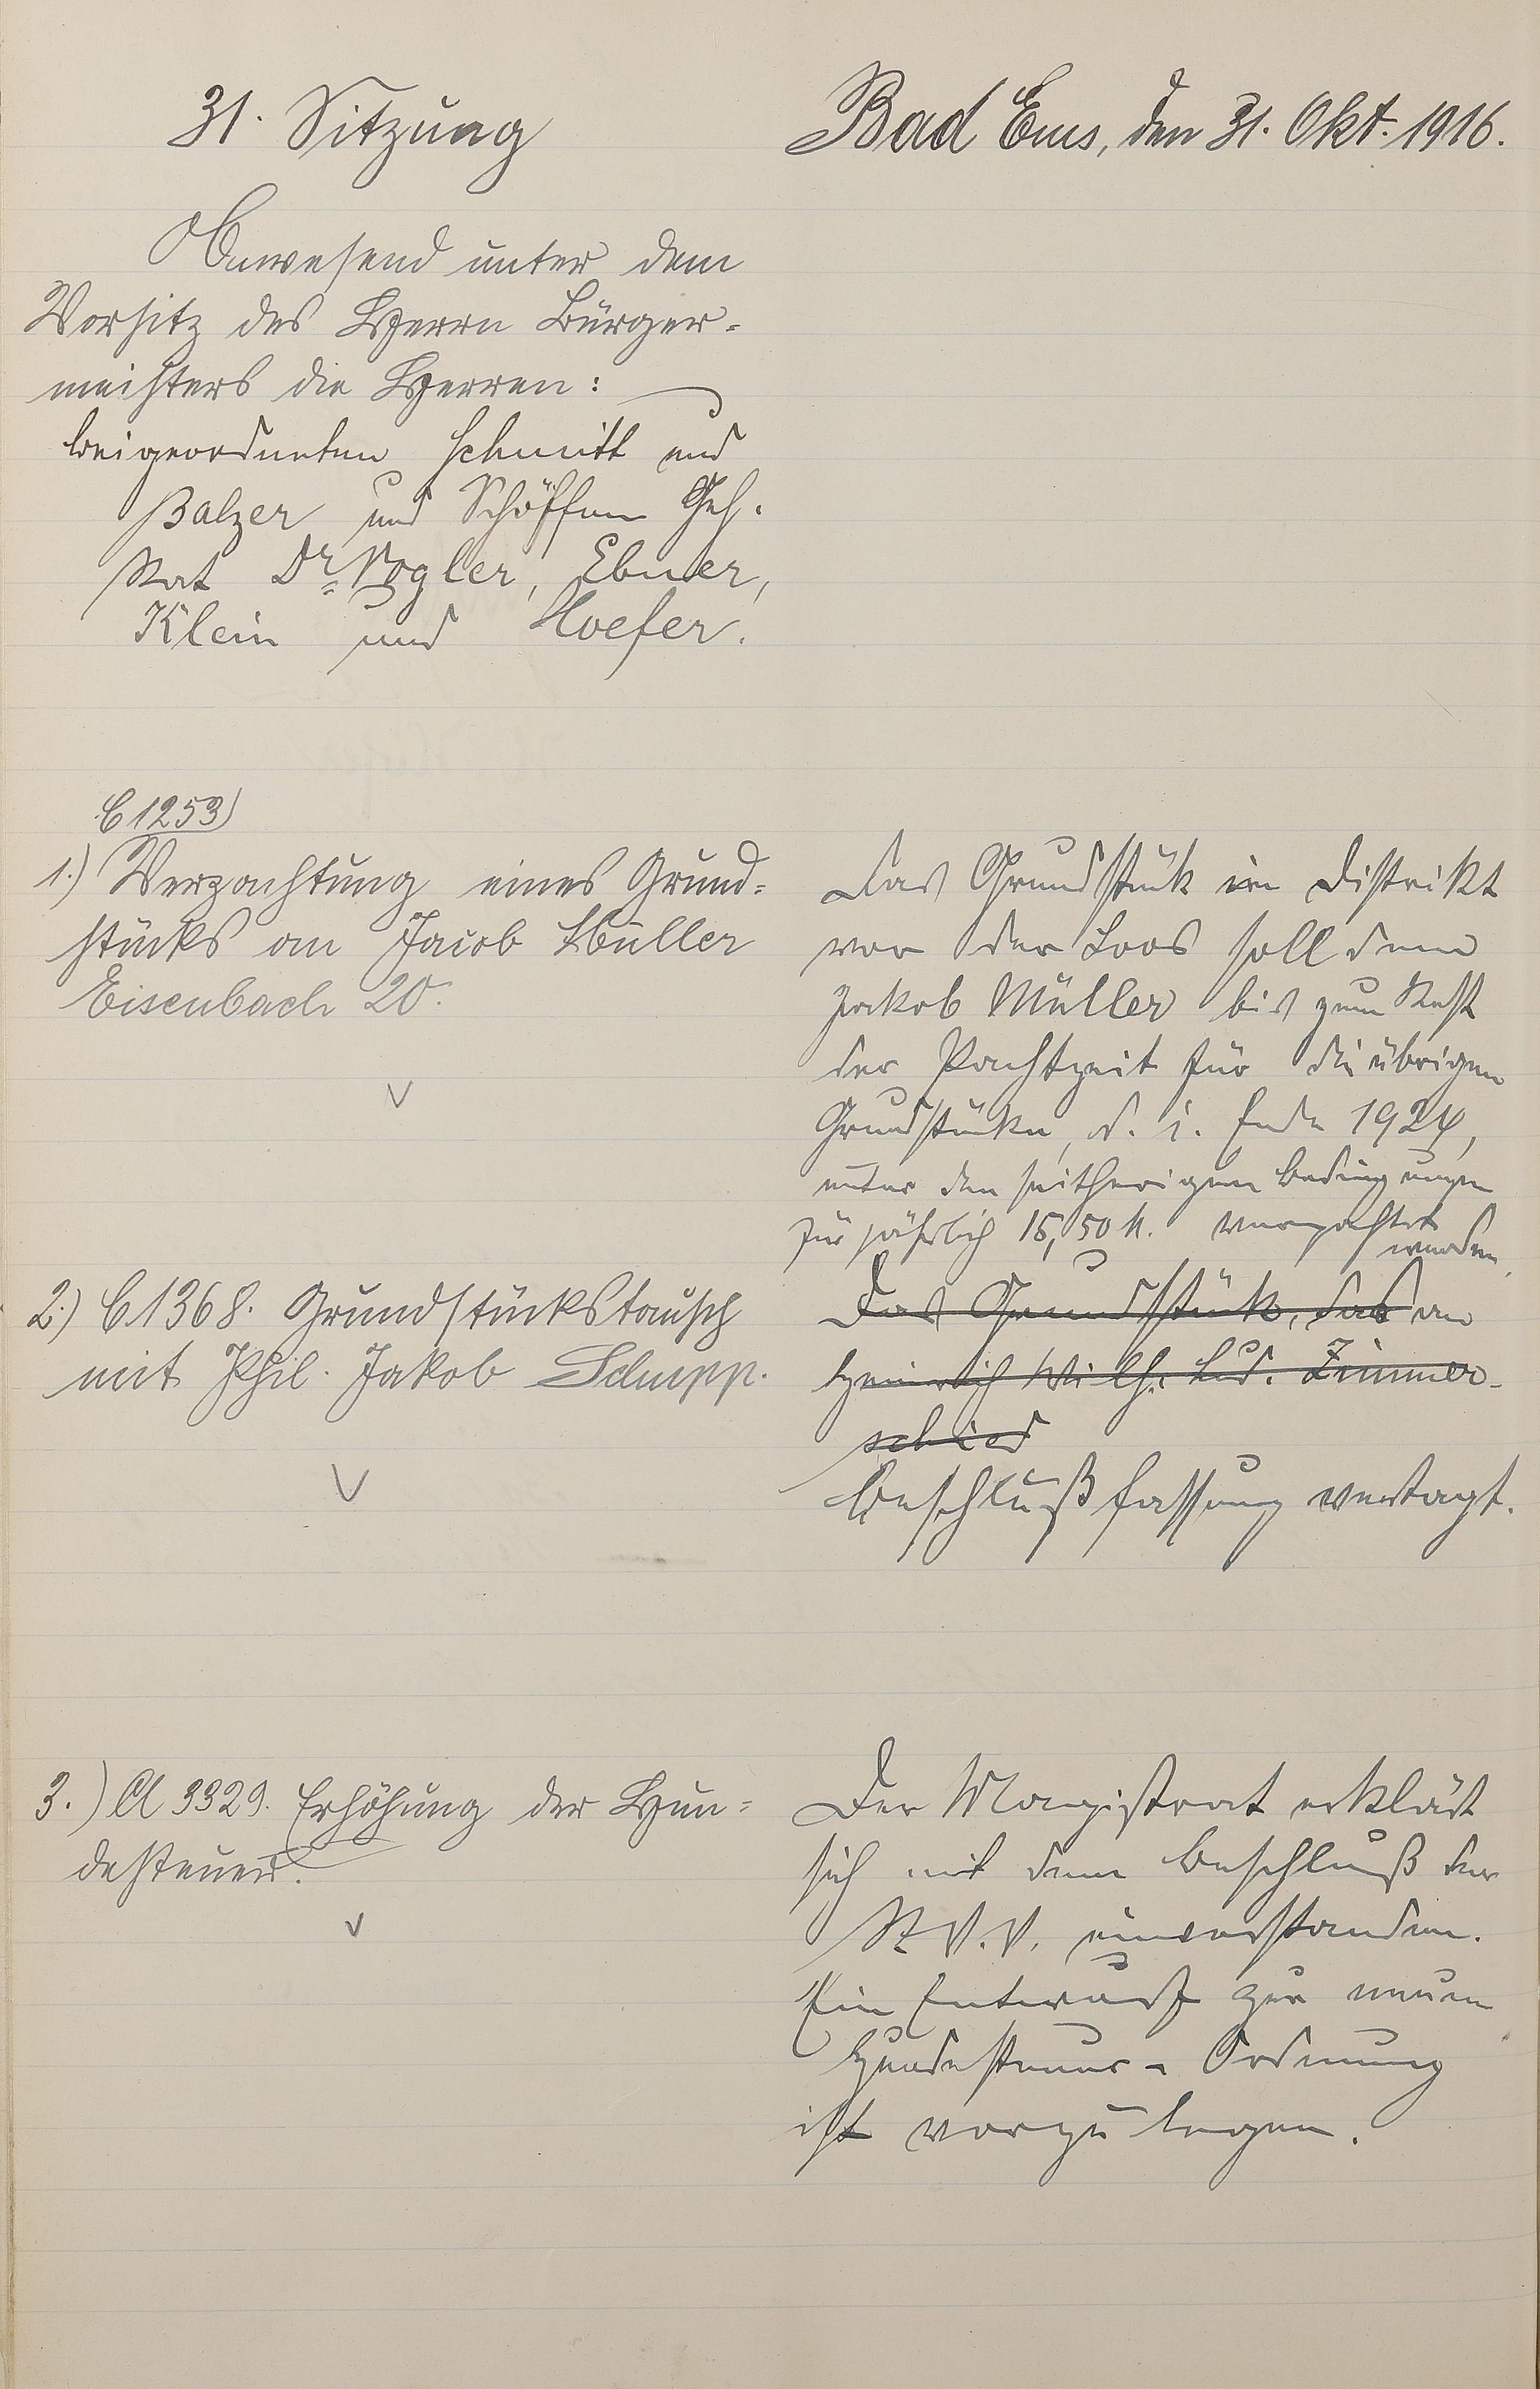 31. Sitzung
Bad Ems, den 31. Okt. 1916.
Anwesend unter dem
Vorsitz des Herrn Bürger-
meisters die Herren:
Beigeordneten Schmitt und
Balzer und Schöffen Geh.
Rat Dr. Vogler, Ebner,
Klein und Hoefer.
C 1253)
1.) Verpachtung eines Grund-
stücks an Jacob Müller
Eisenbach 20.
Das Grundstück im Distrikt
vor der Loos soll dem
Jakob Müller bis zum Rest
der Pachtzeit für die übrigen
Grundstücke, d. i. Ende 1924,
unter den seitherigen Bedingungen
für jährlich 15,50 M. verpachtet
werden.
2.) C 1368. Grundstückstausch
mit Phil. Jakob Schupp.
Das Grundstück, das an
Heinrich Wilh. Lud. Zimmer-
schied
Beschlußfassung vertagt.
3.) A 3329. Erhöhung der Hun-
desteuer.
Der Magistrat erklärt
sich mit dem Beschluß der
St. V. V. einverstanden.
Ein Entwurf zur neuen
Hundesteuer-Ordnung
ist vorzulegen.